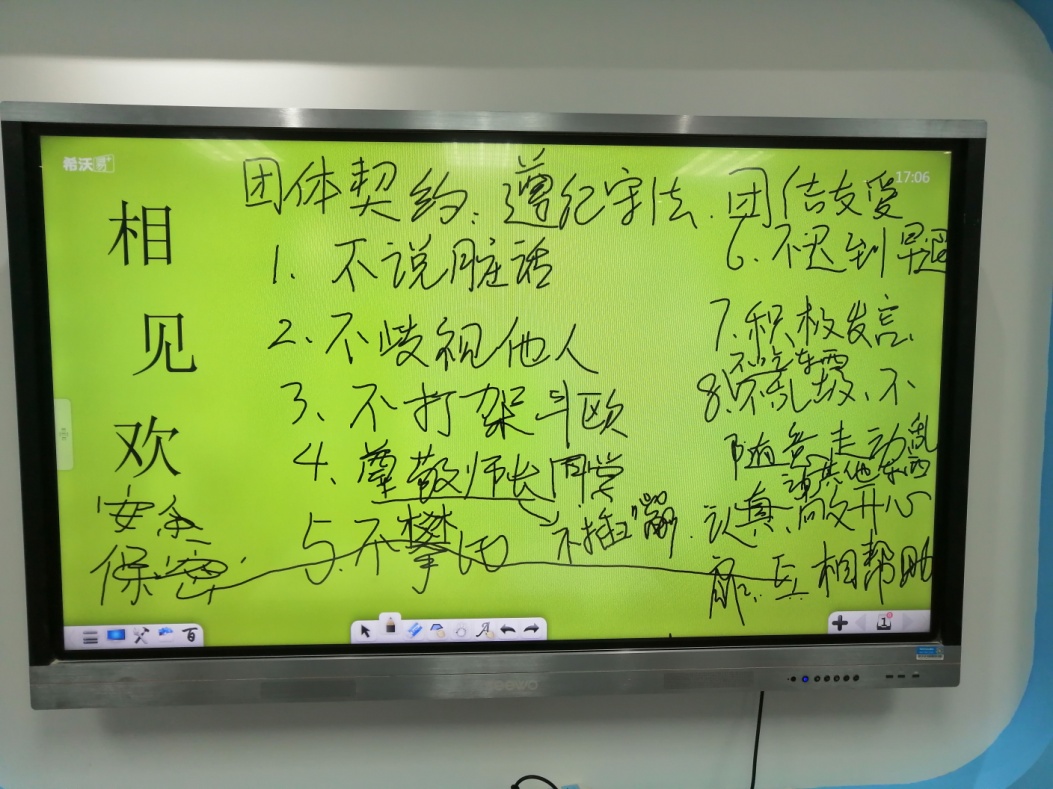 希沃易+
17:06
相
见
欢
安全
保密
团体契约、遵纪守法、团结友爱
1、不说脏话
2、不歧视他人
3、不打架斗欧
4、尊敬师长同学
不插嘴
5、不攀比
6、不迟到早退
7、积极发言、
不吃东西
8、不乱放、不
随意走动乱
认真、敞开心
扉、互相帮助
1